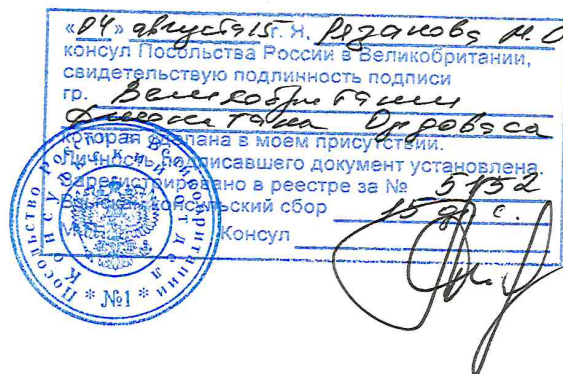 «04» августа 15 г. Я, Рязанова М.О
консул Посольства России в Великобритании,
свидетельствую подлинность подписи
гр. Великобритании
Джонатана Ордоваса
которая сделана в моем присутствии.
Личность подписавшего документ установлена
Зарегистрировано в реестре за № 5152
Взыскан консульский сбор 15 ф. с.
Консул
Посольство России в Великобритании
Консульский отдел
* №1 *